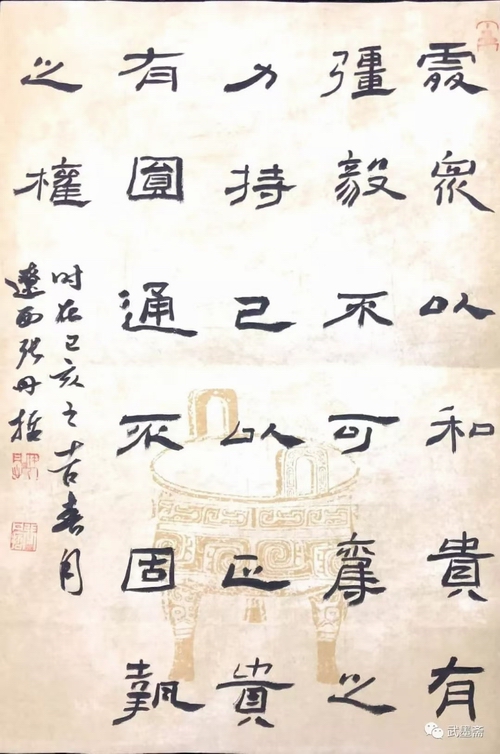 處衆以和貴有
彊毅不可奪之
力持己以正貴
有圓通不固執
之權
时在己亥之吉春月
遼西张丹哲
武墨斋